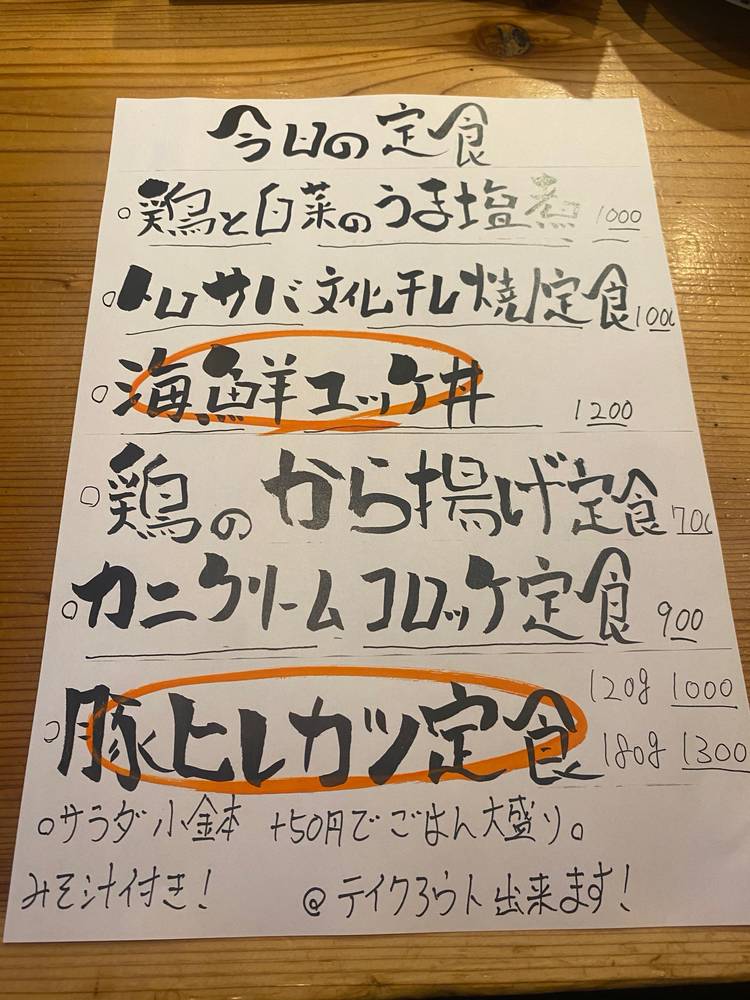 今日の定食
○鶏と白菜のうま塩煮 1000
○トロサバ文化干し焼定食 1000
○海鮮ユッケ丼 1200
○鶏のから揚げ定食 700
○カニクリームコロッケ定食 900
○豚ヒレカツ定食 120g 1000
180g 1300
○サラダ小鉢 +50円でごはん大盛り。
みそ汁付き! @テイクアウト出来ます!